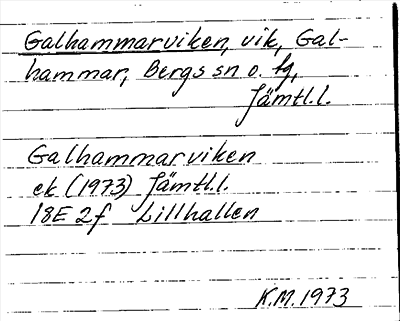 Galhammarviken, vik, Gal-
hammar, Bergs sn o. tg,
Jämtl.l.
Galhammarviken
ek (1973) Jämtl.l.
18E 2f Lillhallen
K.M. 1973